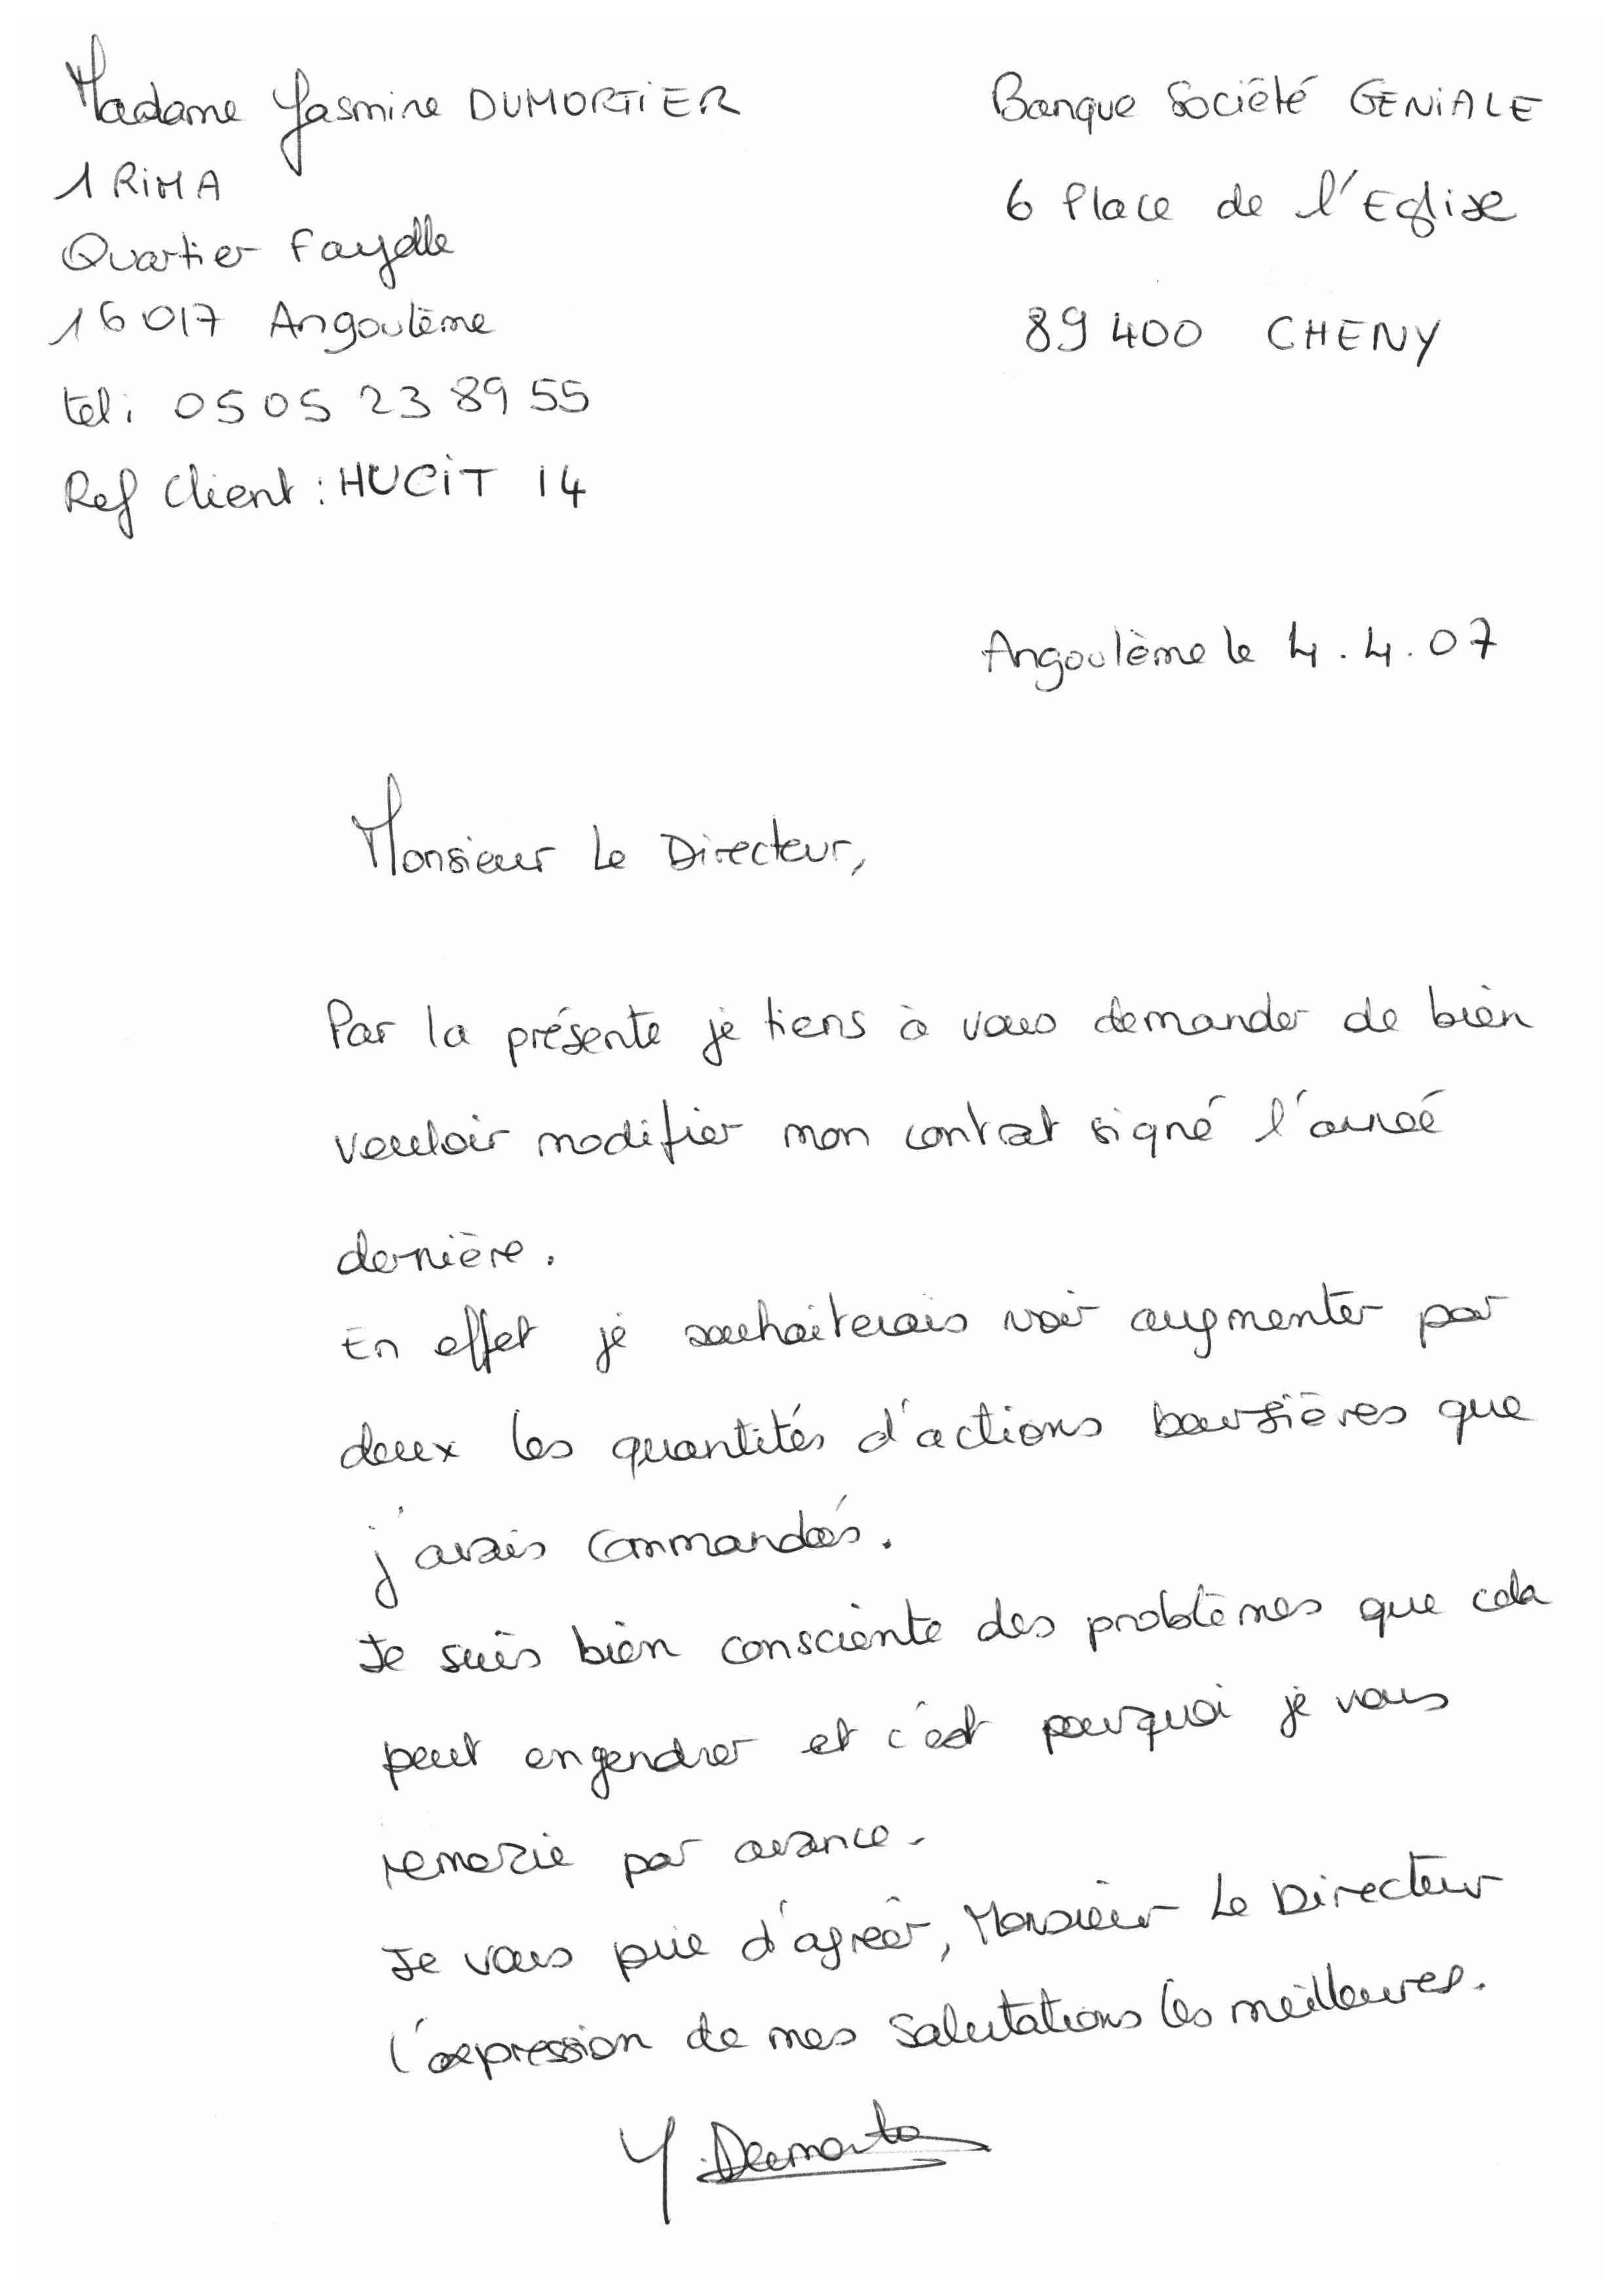 Madame Yasmine DUMORTIER
1 RIMA
Quartier Fayolle
16017 Angoulème
tél: 05 05 23 89 55
Ref Client : HUCIT 14
Banque Société GENIALE
6 Place de l'Eglise
89400 CHENY
Angoulème le 4.4.07
Monsieur Le Directeur,
Par la présente je tiens à vous demander de bien
vouloir modifier mon contrat signé l'année
dernière.
En effet je souhaiterais voir augmenter par
deux les quantités d'actions boursières que
j'avais commandés.
Je suis bien consciente des problèmes que cela
peut engendrer et c'est pourquoi je vous
remercie par avance.
Je vous prie d'agréer, Monsieur Le Directeur
l'expression de mes salutations les meilleures.
Y. Dumortier